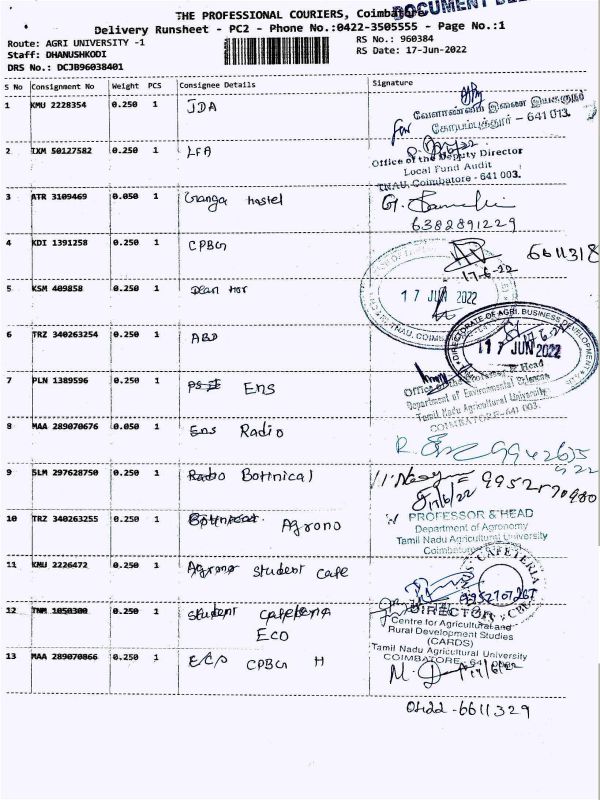 THE PROFESSIONAL COURIERS, Coimbatore
Delivery Runsheet - PC2 - Phone No.:0422-3505555 - Page No.:1
Route: AGRI UNIVERSITY -1
RS No.: 960384
Staff: DHANUSHKODI
RS Date: 17-Jun-2022
DRS No.: DCJB96038401
S No Consignment No Weight PCS Consignee Details Signature
1 KMU 2228354 0.250 1 JDA
வேளாண்மை இணை இயக்குநர்
For கோயம்புத்தூர் – 641 013.
2 IXM 50127582 0.250 1 LFA
Office of the Deputy Director
Local Fund Audit
TNAU, Coimbatore - 641 003.
3 ATR 3109469 0.050 1 Ganga hostel
6382891229
4 KDI 1391258 0.250 1 CPBG
6611318
17-6-22
5 KSM 409858 0.250 1 Dean Hor
17 JUN 2022
6 TRZ 340263254 0.250 1 ABD
DIRECTORATE OF AGRI. BUSINESS DEVELOPMENT
17 JUN 2022
7 PLN 1389596 0.250 1 Ens
Office of the Professor & Head
Department of Environmental Sciences
Tamil Nadu Agricultural University
COIMBATORE-641 003.
8 MAA 289070676 0.050 1 Ens Radio
9 SLM 297628750 0.250 1 Radio Bottnical
17/6/22
10 TRZ 340263255 0.250 1 Bottnical Agrono
PROFESSOR & HEAD
Department of Agronomy
Tamil Nadu Agricultural University
Coimbatore
11 KMU 2226472 0.250 1 Agrono student cafe
CAFETERIA
12 TNM 1050300 0.250 1 student cafeteria
Eco
DIRECTOR
Centre for Agricultural and
Rural Development Studies
(CARDS)
Tamil Nadu Agricultural University
COIMBATORE
13 MAA 289070866 0.250 1 Eco CPBG H
17/6/22
0422-6611329